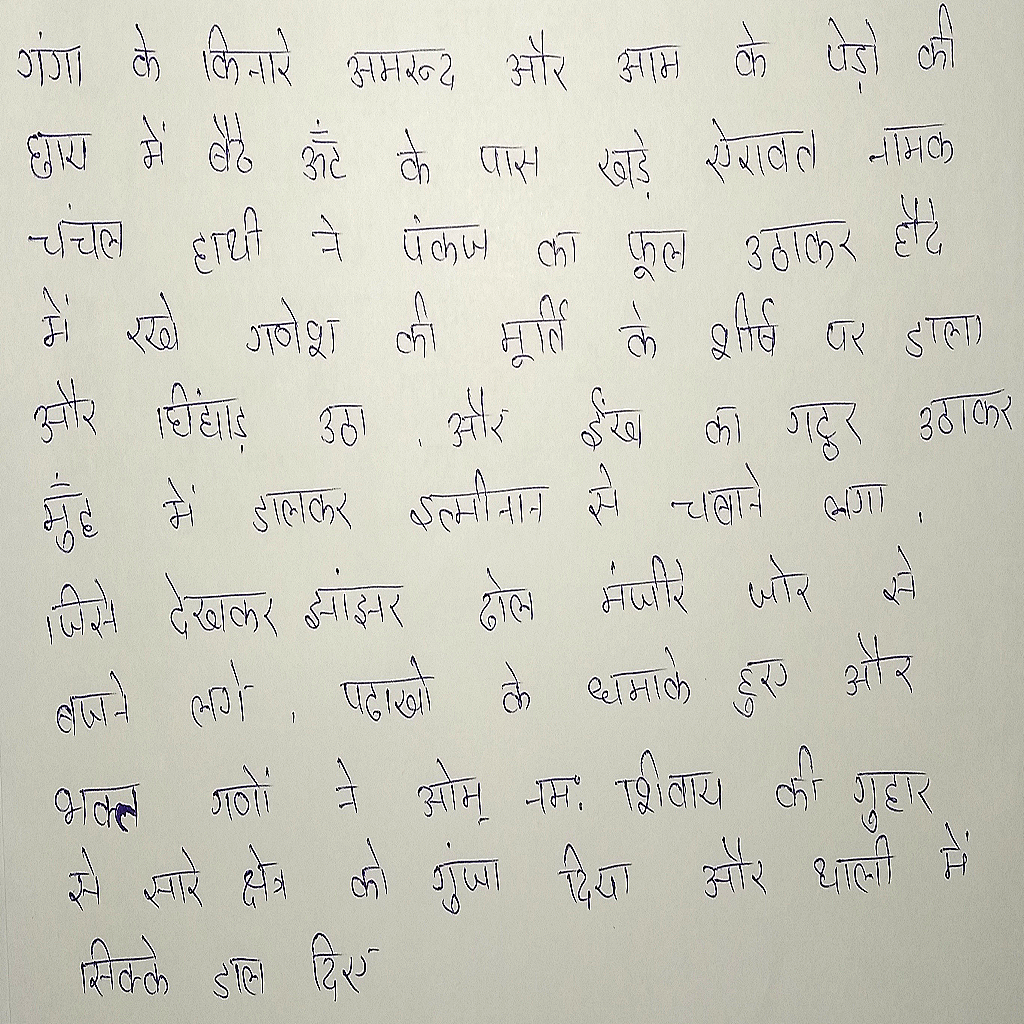 गंगा के किनारे अमरुन्द और आम के पेड़ो की
छाय में बैठे ऊँट के पास खड़े ऐरावत नामक
चंचल हाथी ने पंकज का फूल उठाकर हौदे
में रखे गणेश की मूर्ति के शीर्ष पर डाला
और चिंघाड़ उठा . और ईख का गट्ठर उठाकर
मुँह में डालकर इत्मीनान से चबाने लगा .
जिसे देखकर झांझर ढोल मंजीरे जोर से
बजने लगे . पटाखो के धमाके हुए और
भक्त गणों ने ओम् नम: शिवाय की गुहार
से सारे क्षेत्र को गुंजा दिया और थाली में
सिक्के डाल दिए